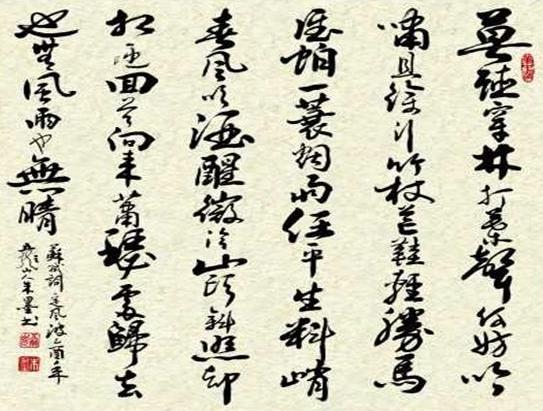 莫聽穿林打葉聲何妨吟
嘯且徐行竹杖芒鞋輕勝馬
誰怕一蓑烟雨任平生料峭
春風吹酒醒微冷山頭斜照却
相迎回首向來蕭瑟處歸去
也無風雨也無晴
蘇軾詞定風波乙酉年